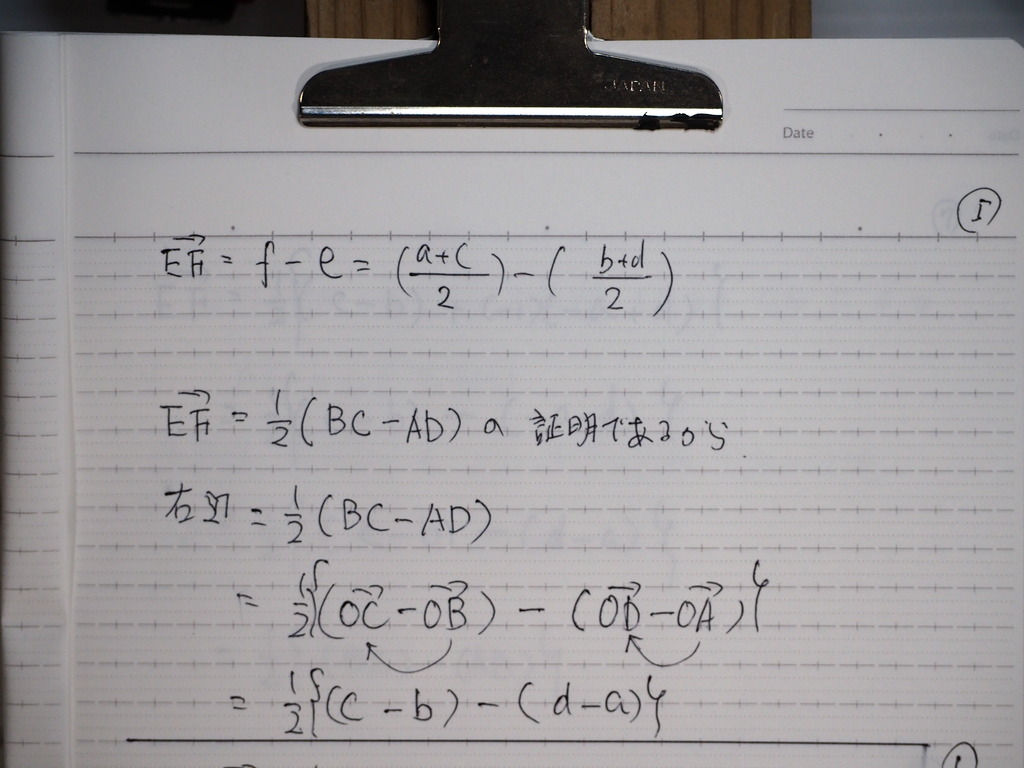 JAPAN
Date
①
EF = f - e = (a+c/2) - (b+d/2)
EF = 1/2 (BC - AD) の 証明であるから
右辺 = 1/2 (BC - AD)
= 1/2 {(OC - OB) - (OD - OA)}
= 1/2 {(c - b) - (d - a)}